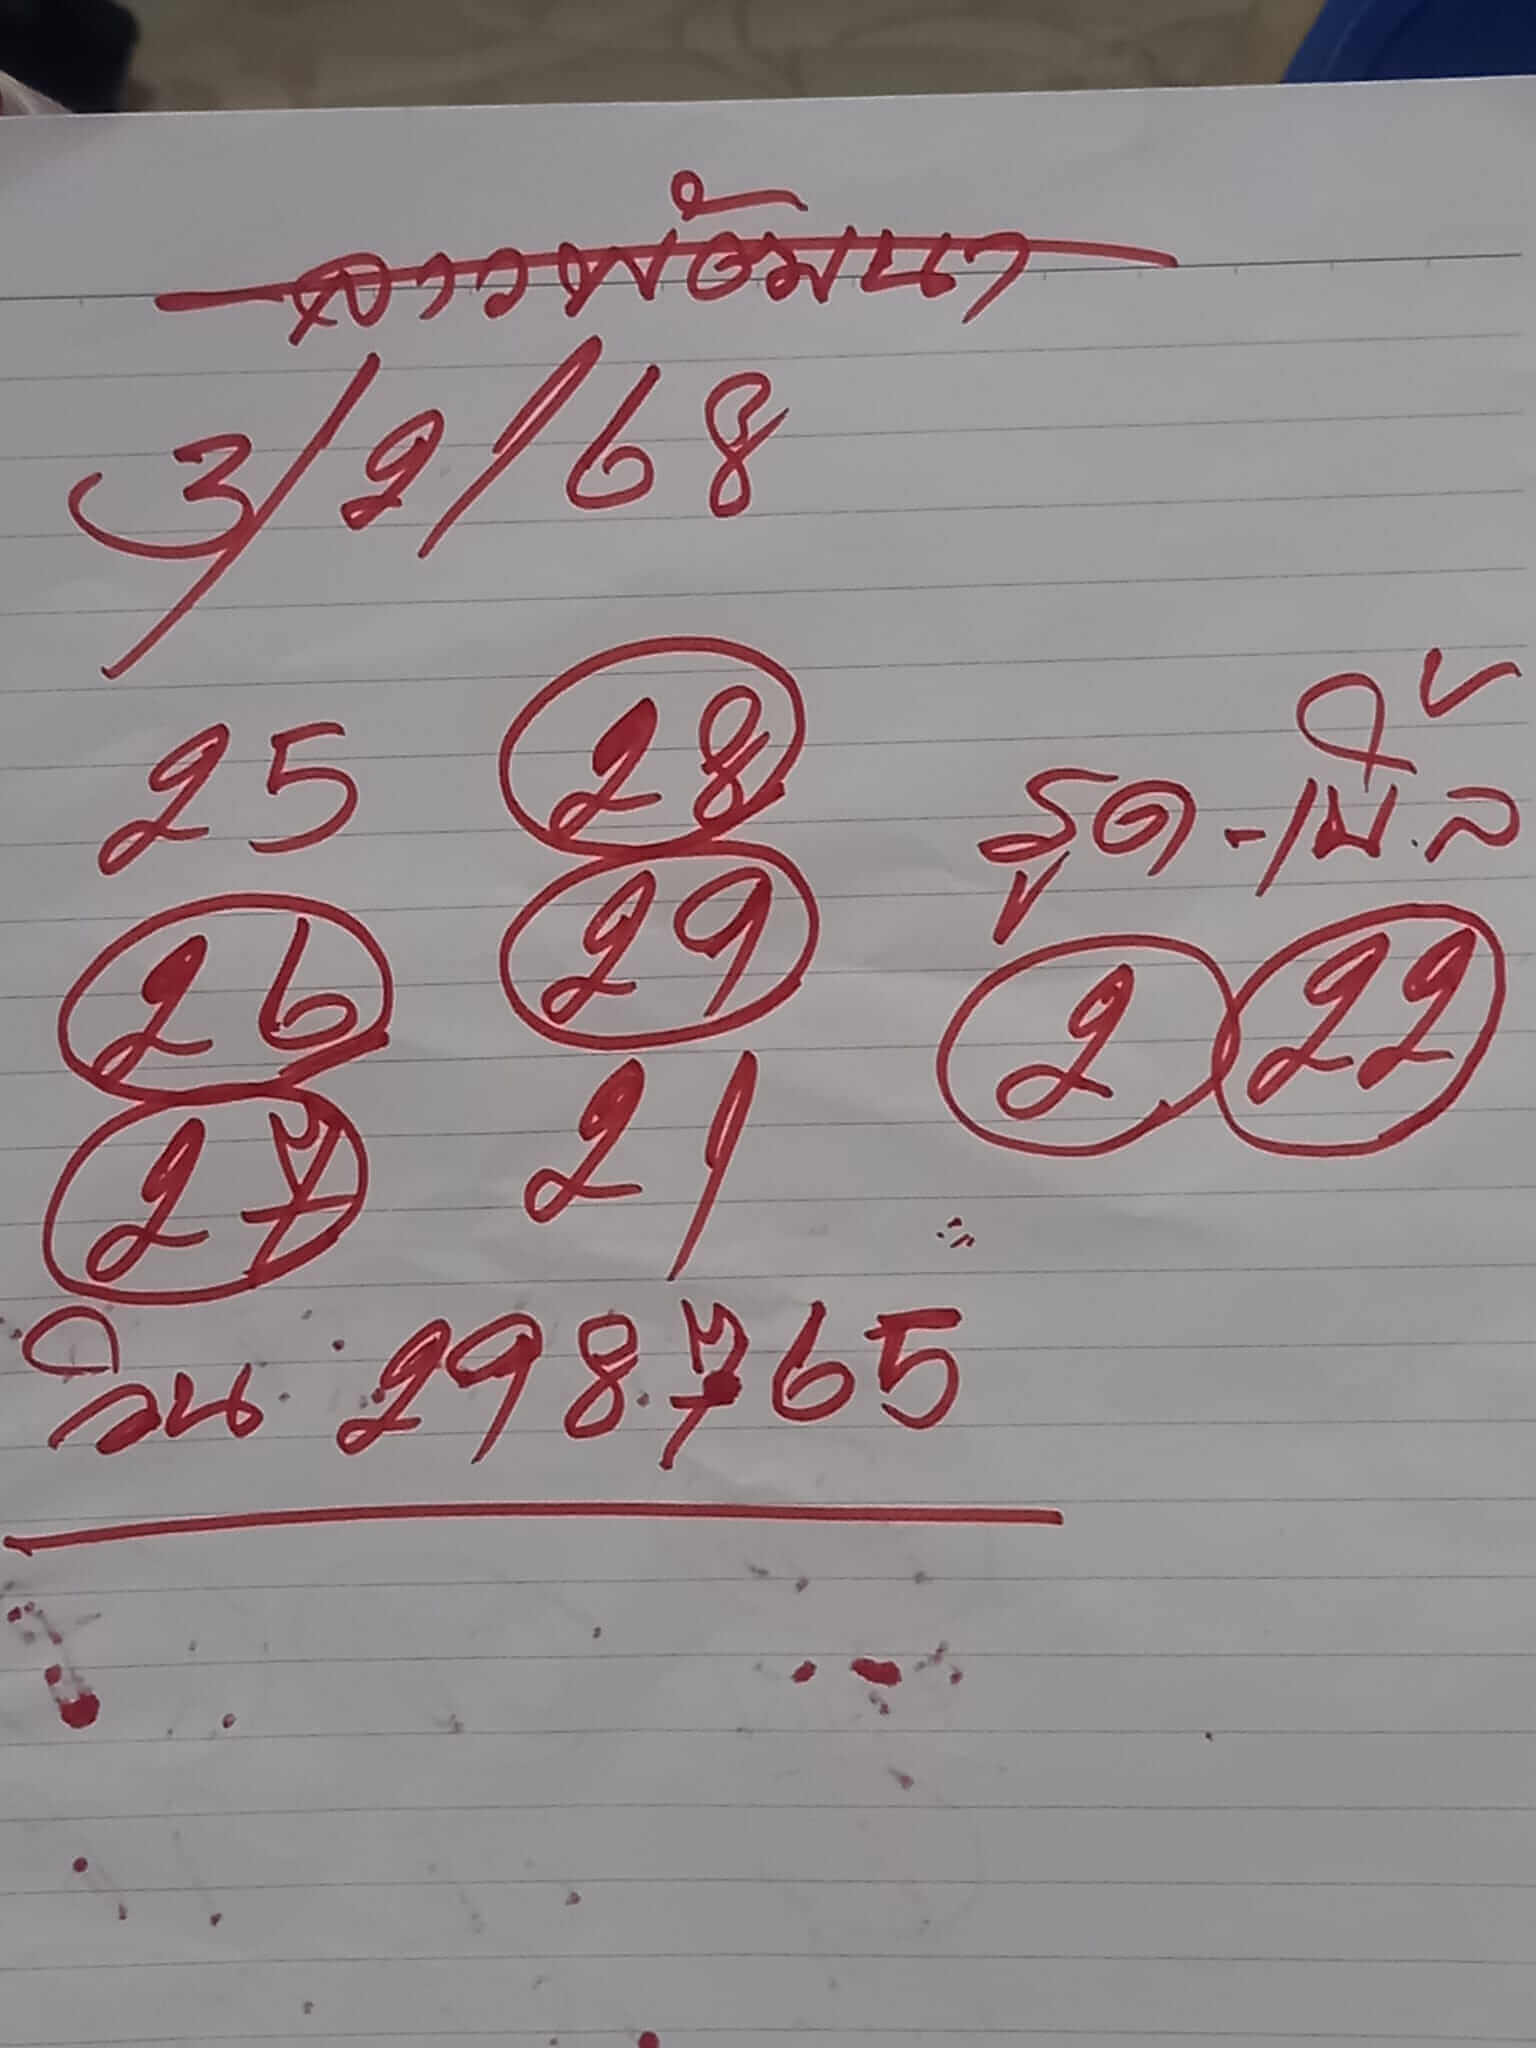 ลาวพัฒนา
3/2/68
25 28
26 29
27 21
รูด-เบิ้ล
2 22
วิน 298765